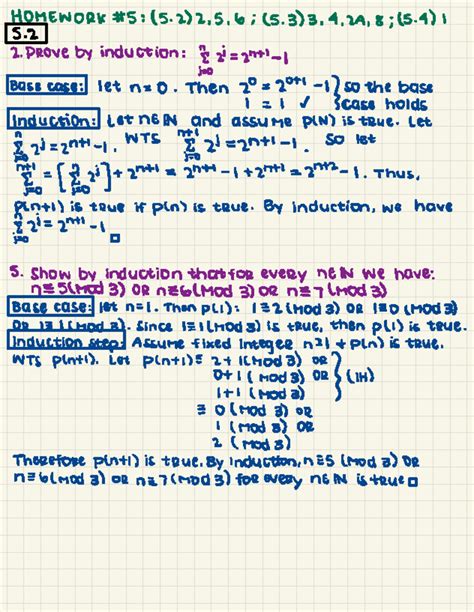 HOMEWORK #5: (5.2) 2, 5, 6; (5.3) 3, 4, 2A, 8; (5.4) 1
5.2
2. Prove by induction: n Σ j=0 2^j = 2^(n+1) - 1
Base case: let n=0. Then 2^0 = 2^(0+1) - 1 } so the base
1 = 1 ✓ } case holds
Induction: Let n∈ℕ and assume P(N) is true. Let
n Σ j=0 2^j = 2^(n+1) - 1. WTS n+1 Σ j=0 2^j = 2^(n+1) - 1. So let
n+1 Σ j=0 = [n Σ j=0 2^j] + 2^(n+1) = 2^(n+1) - 1 + 2^(n+1) = 2^(n+2) - 1. Thus,
P(n+1) is true if p(n) is true. By induction, we have
n Σ j=0 2^j = 2^(n+1) - 1 □
5. Show by induction that for every n∈ℕ we have:
n≡5(mod 3) OR n≡6(mod 3) OR n≡7(mod 3)
Base case: let n=1. Then p(1): 1≡2(mod 3) OR 1≡0(mod 3)
OR 1≡1(mod 3). Since 1≡1(mod 3) is true, then p(1) is true.
Induction step: Assume fixed integer n≥1 + p(n) is true.
WTS p(n+1). Let p(n+1) ≡ 2+1(mod 3) OR
0+1(mod 3) OR } (IH)
1+1(mod 3)
≡ 0(mod 3) OR
1(mod 3) OR
2(mod 3)
Therefore p(n+1) is true. By induction, n≡5(mod 3) OR
n≡6(mod 3) OR n≡7(mod 3) for every n∈ℕ is true □